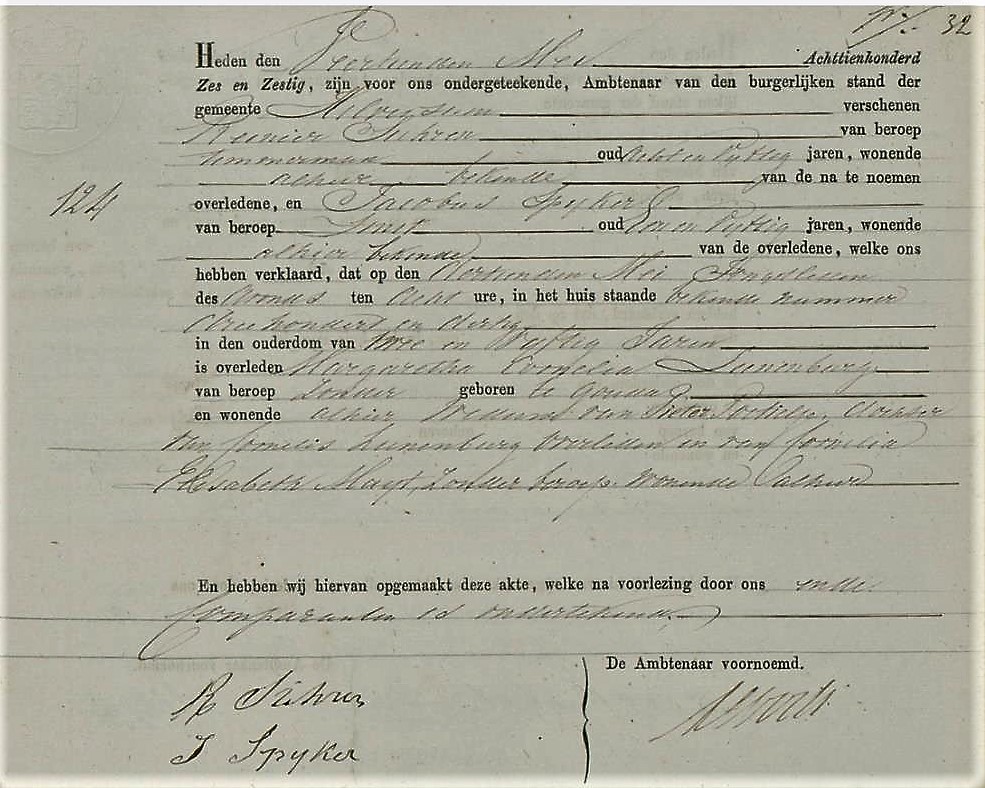 32
Heden den Veertienden Mei Achttienhonderd
Zes en Zestig, zijn voor ons ondergeteekende, Ambtenaar van den burgerlijken stand der
gemeente Hilversum verschenen
Reinier Suhren van beroep
timmerman oud Acht en Vyftig jaren, wonende
alhier bekende van de na te noemen
124
overledene, en Jacobus Spyker
van beroep oud en Vyftig jaren, wonende
alhier bekende van de overledene, welke ons
hebben verklaard, dat op den Mei Jongstleden
des avonds ten acht ure, in het huis staande bekende nummer
driehonderd en dertig
in den ouderdom van twee en Vyftig Jaren
is overleden Margaretha Cornelia Lunenburg
van beroep Zonder geboren te Gouda
en wonende alhier Weduwe van Pieter dochter
van Cornelis Lunenburg overleden en van Cornelia
Elisabeth Zonder beroep wonende alhier
En hebben wij hiervan opgemaakt deze akte, welke na voorlezing door ons en de
Comparanten is onderteekend
De Ambtenaar voornoemd.
R Suhren
J Spyker